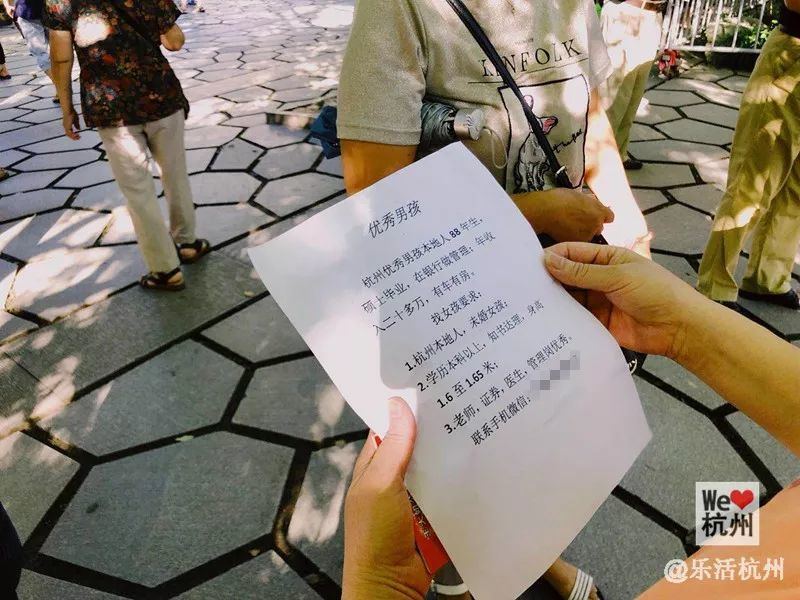 KINFOLK
优秀男孩
杭州优秀男孩本地人88年生,
硕士毕业,在银行做管理;年收
入二十多万,有车有房。
找女孩要求:
1.杭州本地人,未婚女孩;
2.学历本科以上,知书达理,身高
1.6至1.65米,
3.老师,证券,医生,管理岗优秀。
联系手机微信:
We
杭州
@乐活杭州